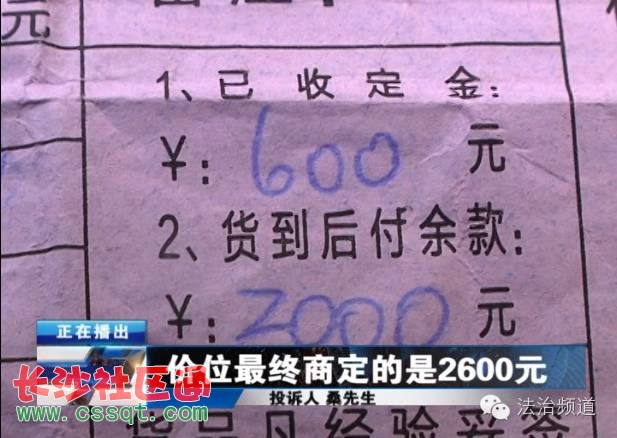 元
1、已收定金：
￥：600 元
2、货到后付余款：
￥：2000 元
正在播出
价位最终商定的是2600元
投诉人 桑先生
长沙社区通
www.cssqt.com
法治频道
品凡经验妥签